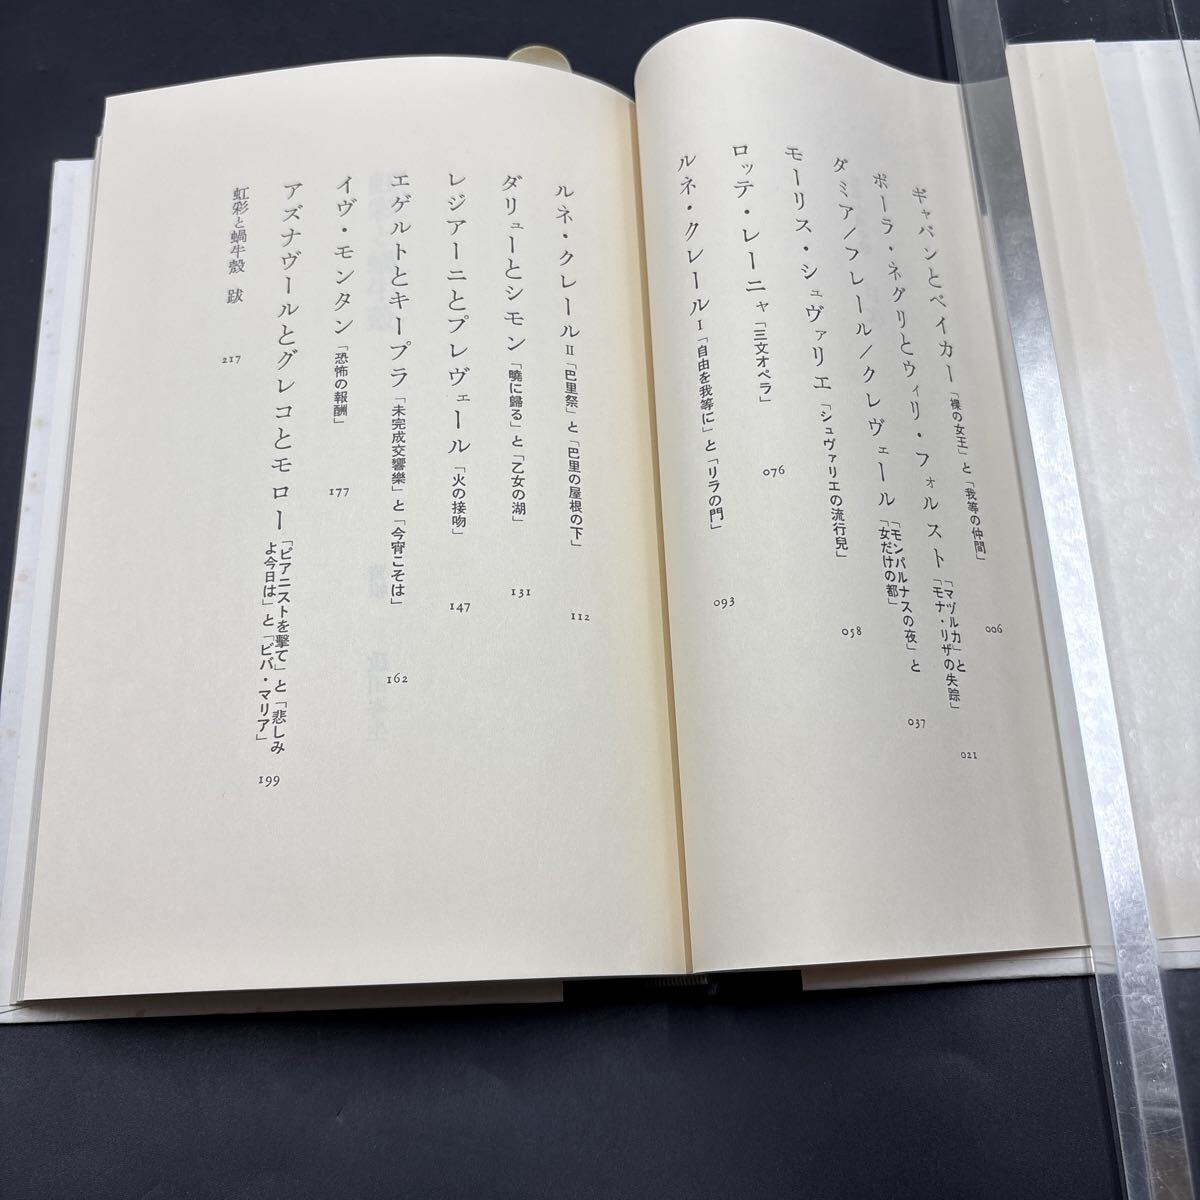 ギャバンとベイカー「裸の女王」と「我等の仲間」 006
ポーラ・ネグリとウィリ・フォルスト「マヅルカ」と
「モナ・リザの失踪」 021
ダミア/フレール/クレヴェール「モンパルナスの夜」と
「女だけの都」 037
モーリス・シュヴァリエ「シュヴァリエの流行兒」 058
ロッテ・レーニャ「三文オペラ」 076
ルネ・クレールⅠ「自由を我等に」と「リラの門」 093
ルネ・クレールⅡ「巴里祭」と「巴里の屋根の下」 112
ダリューとシモン「曉に歸る」と「乙女の湖」 131
レジアーニとプレヴェール「火の接吻」 147
エゲルトとキープラ「未完成交響樂」と「今宵こそは」 162
イヴ・モンタン「恐怖の報酬」 177
アズナヴールとグレコとモロー「ピアニストを擊て」と「悲しみ
よ今日は」と「ビバ・マリア」 199
虹彩と蝸牛殼 跋 217